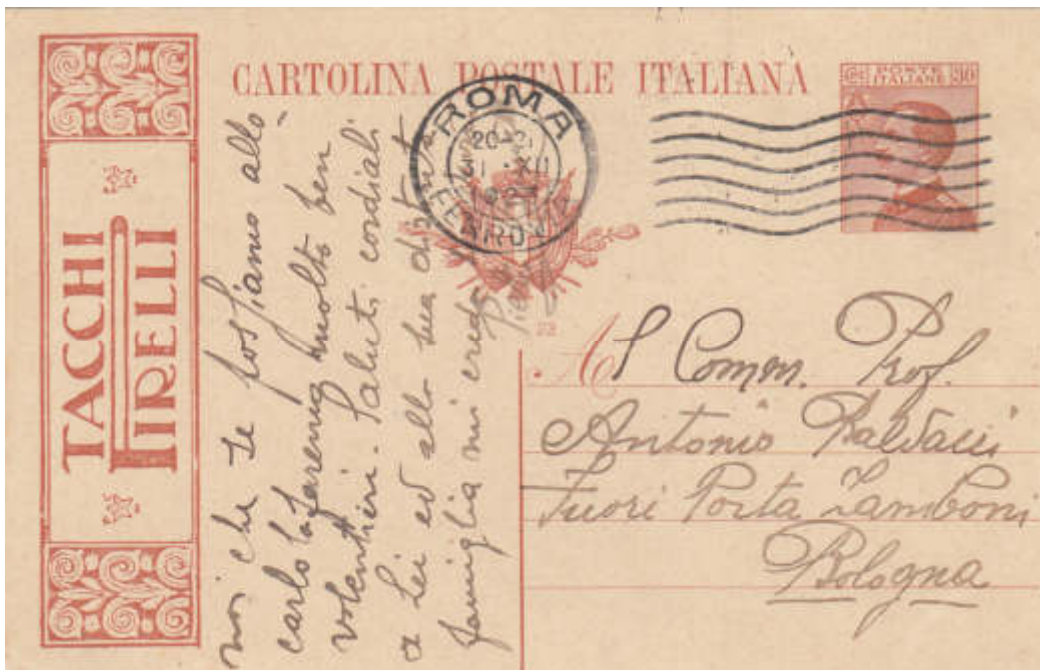 CARTOLINA POSTALE ITALIANA
Cent. POSTE ITALIANE 30
ROMA
20-21
XII
FERROVIA
TACCHI
PIRELLI
noi che se possiamo allo-
carlo lo faremo molto ben
volentieri. Saluti cordiali
a Lei ed alla sua distinta
famiglia mi creda
22
Al Comm. Prof.
Antonio Baldacci
Fuori Porta Zamboni
Bologna